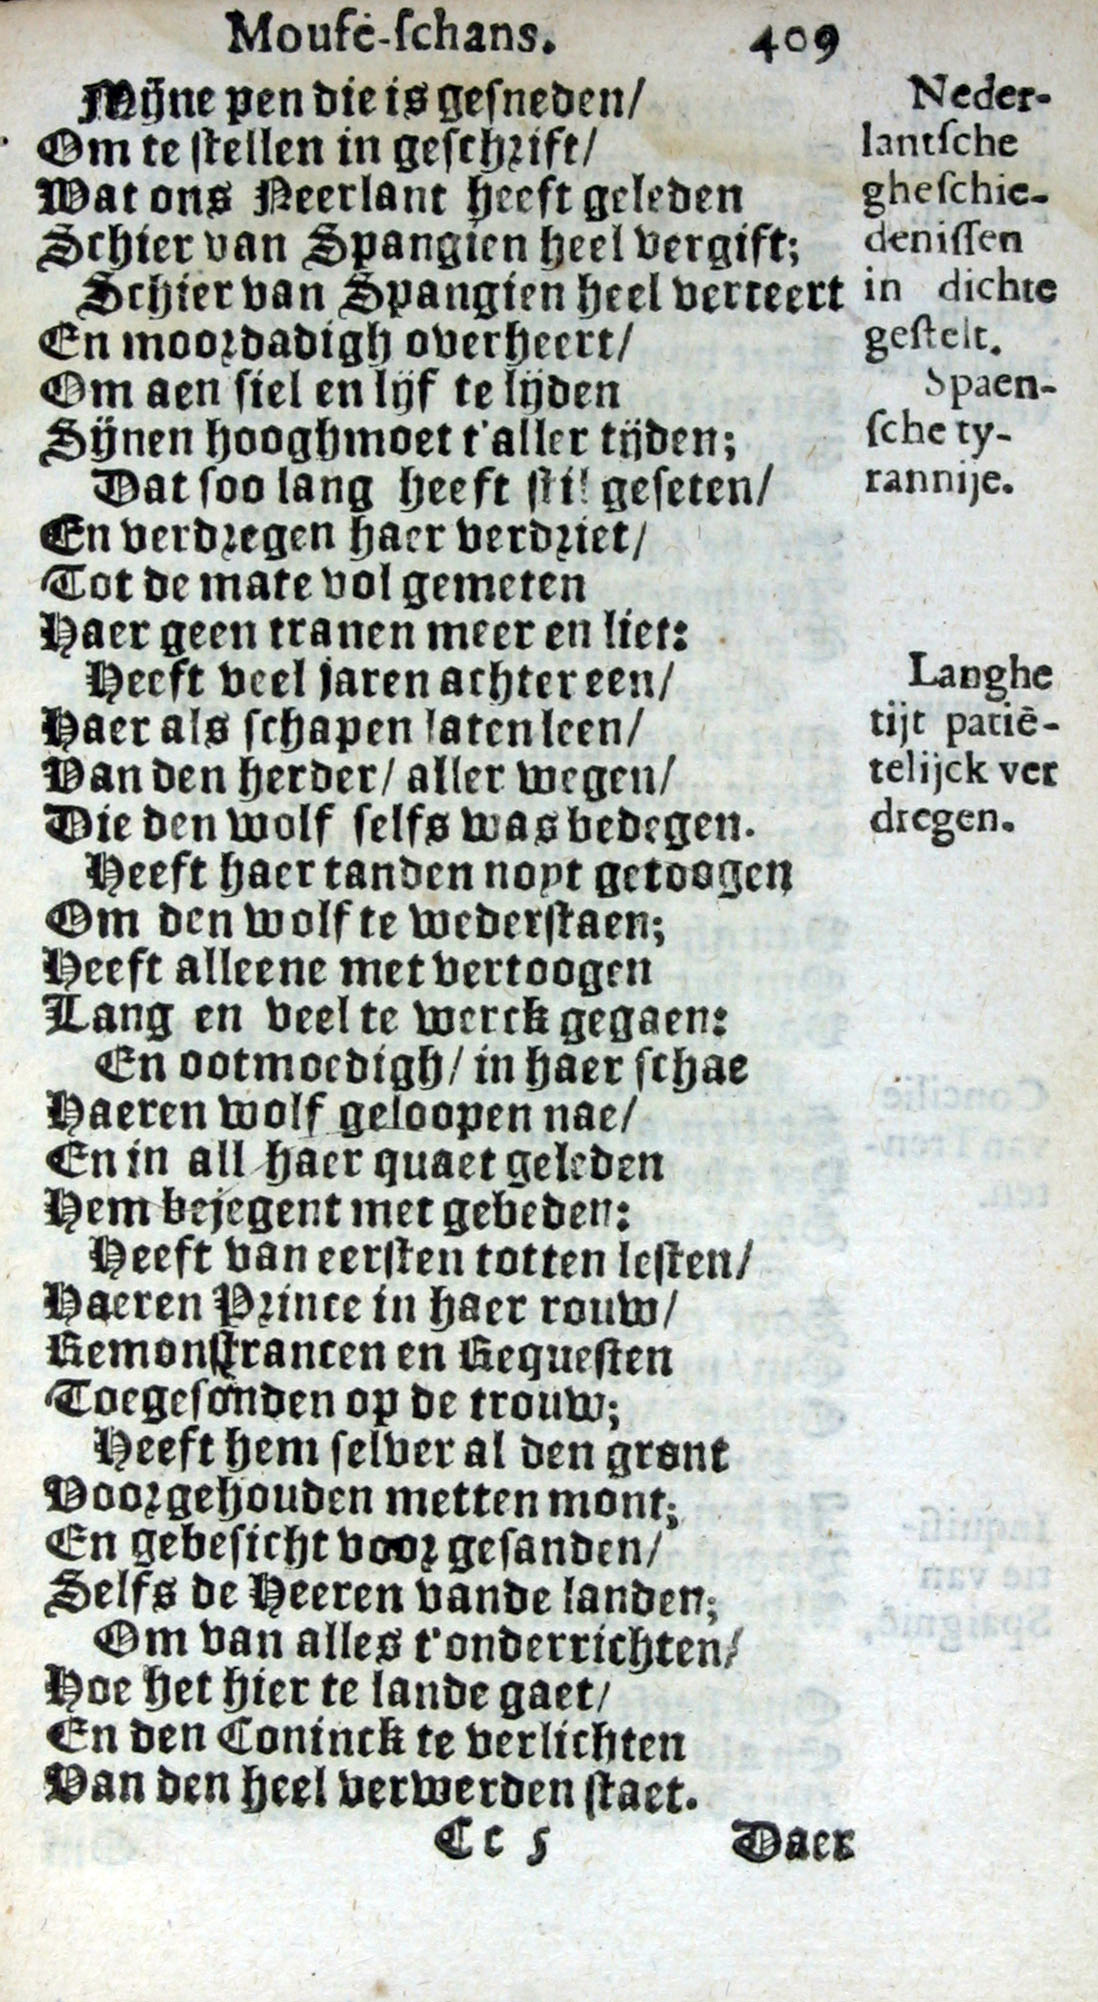 Mouſe-ſchans. 409
Mijne pen die is geſneden/
Om te ſtellen in geſchrift/
Wat ons Neerlant heeft geleden
Schier van Spangien heel vergift;
Schier van Spangien heel verteert
En moordadigh overheert/
Om aen ſiel en lijf te lijden
Sijnen hooghmoet t'aller tijden;
Dat ſoo lang heeft ſtil geſeten/
En verdregen haer verdriet/
Tot de mate vol gemeten
Haer geen tranen meer en liet:
Heeft veel jaren achter een/
Haer als ſchapen laten leen/
Van den herder/ aller wegen/
Die den wolf ſelfs was bedegen.
Heeft haer tanden noyt getoogen
Om den wolf te wederſtaen;
Heeft alleene met vertoogen
Lang en veel te werck gegaen:
En ootmoedigh/ in haer ſchae
Haeren wolf geloopen nae/
En in all haer quaet geleden
Hem bejegent met gebeden:
Heeft van eerſten totten leſten/
Haeren Prince in haer rouw/
Remonſtrancen en Requeſten
Toegeſonden op de trouw;
Heeft hem ſelver al den gront
Voorgehouden metten mont;
En gebeſicht voor geſanden/
Selfs de Heeren vande landen;
Om van alles t'onderrichten/
Hoe het hier te lande gaet/
En den Coninck te verlichten
Van den heel verwerden ſtaet.
Cc 5 Daer
Neder-
lantſche
gheſchie-
deniſſen
in dichte
geſtelt.
Spaen-
ſche ty-
rannije.
Langhe
tijt patiē-
telijck ver
dregen.